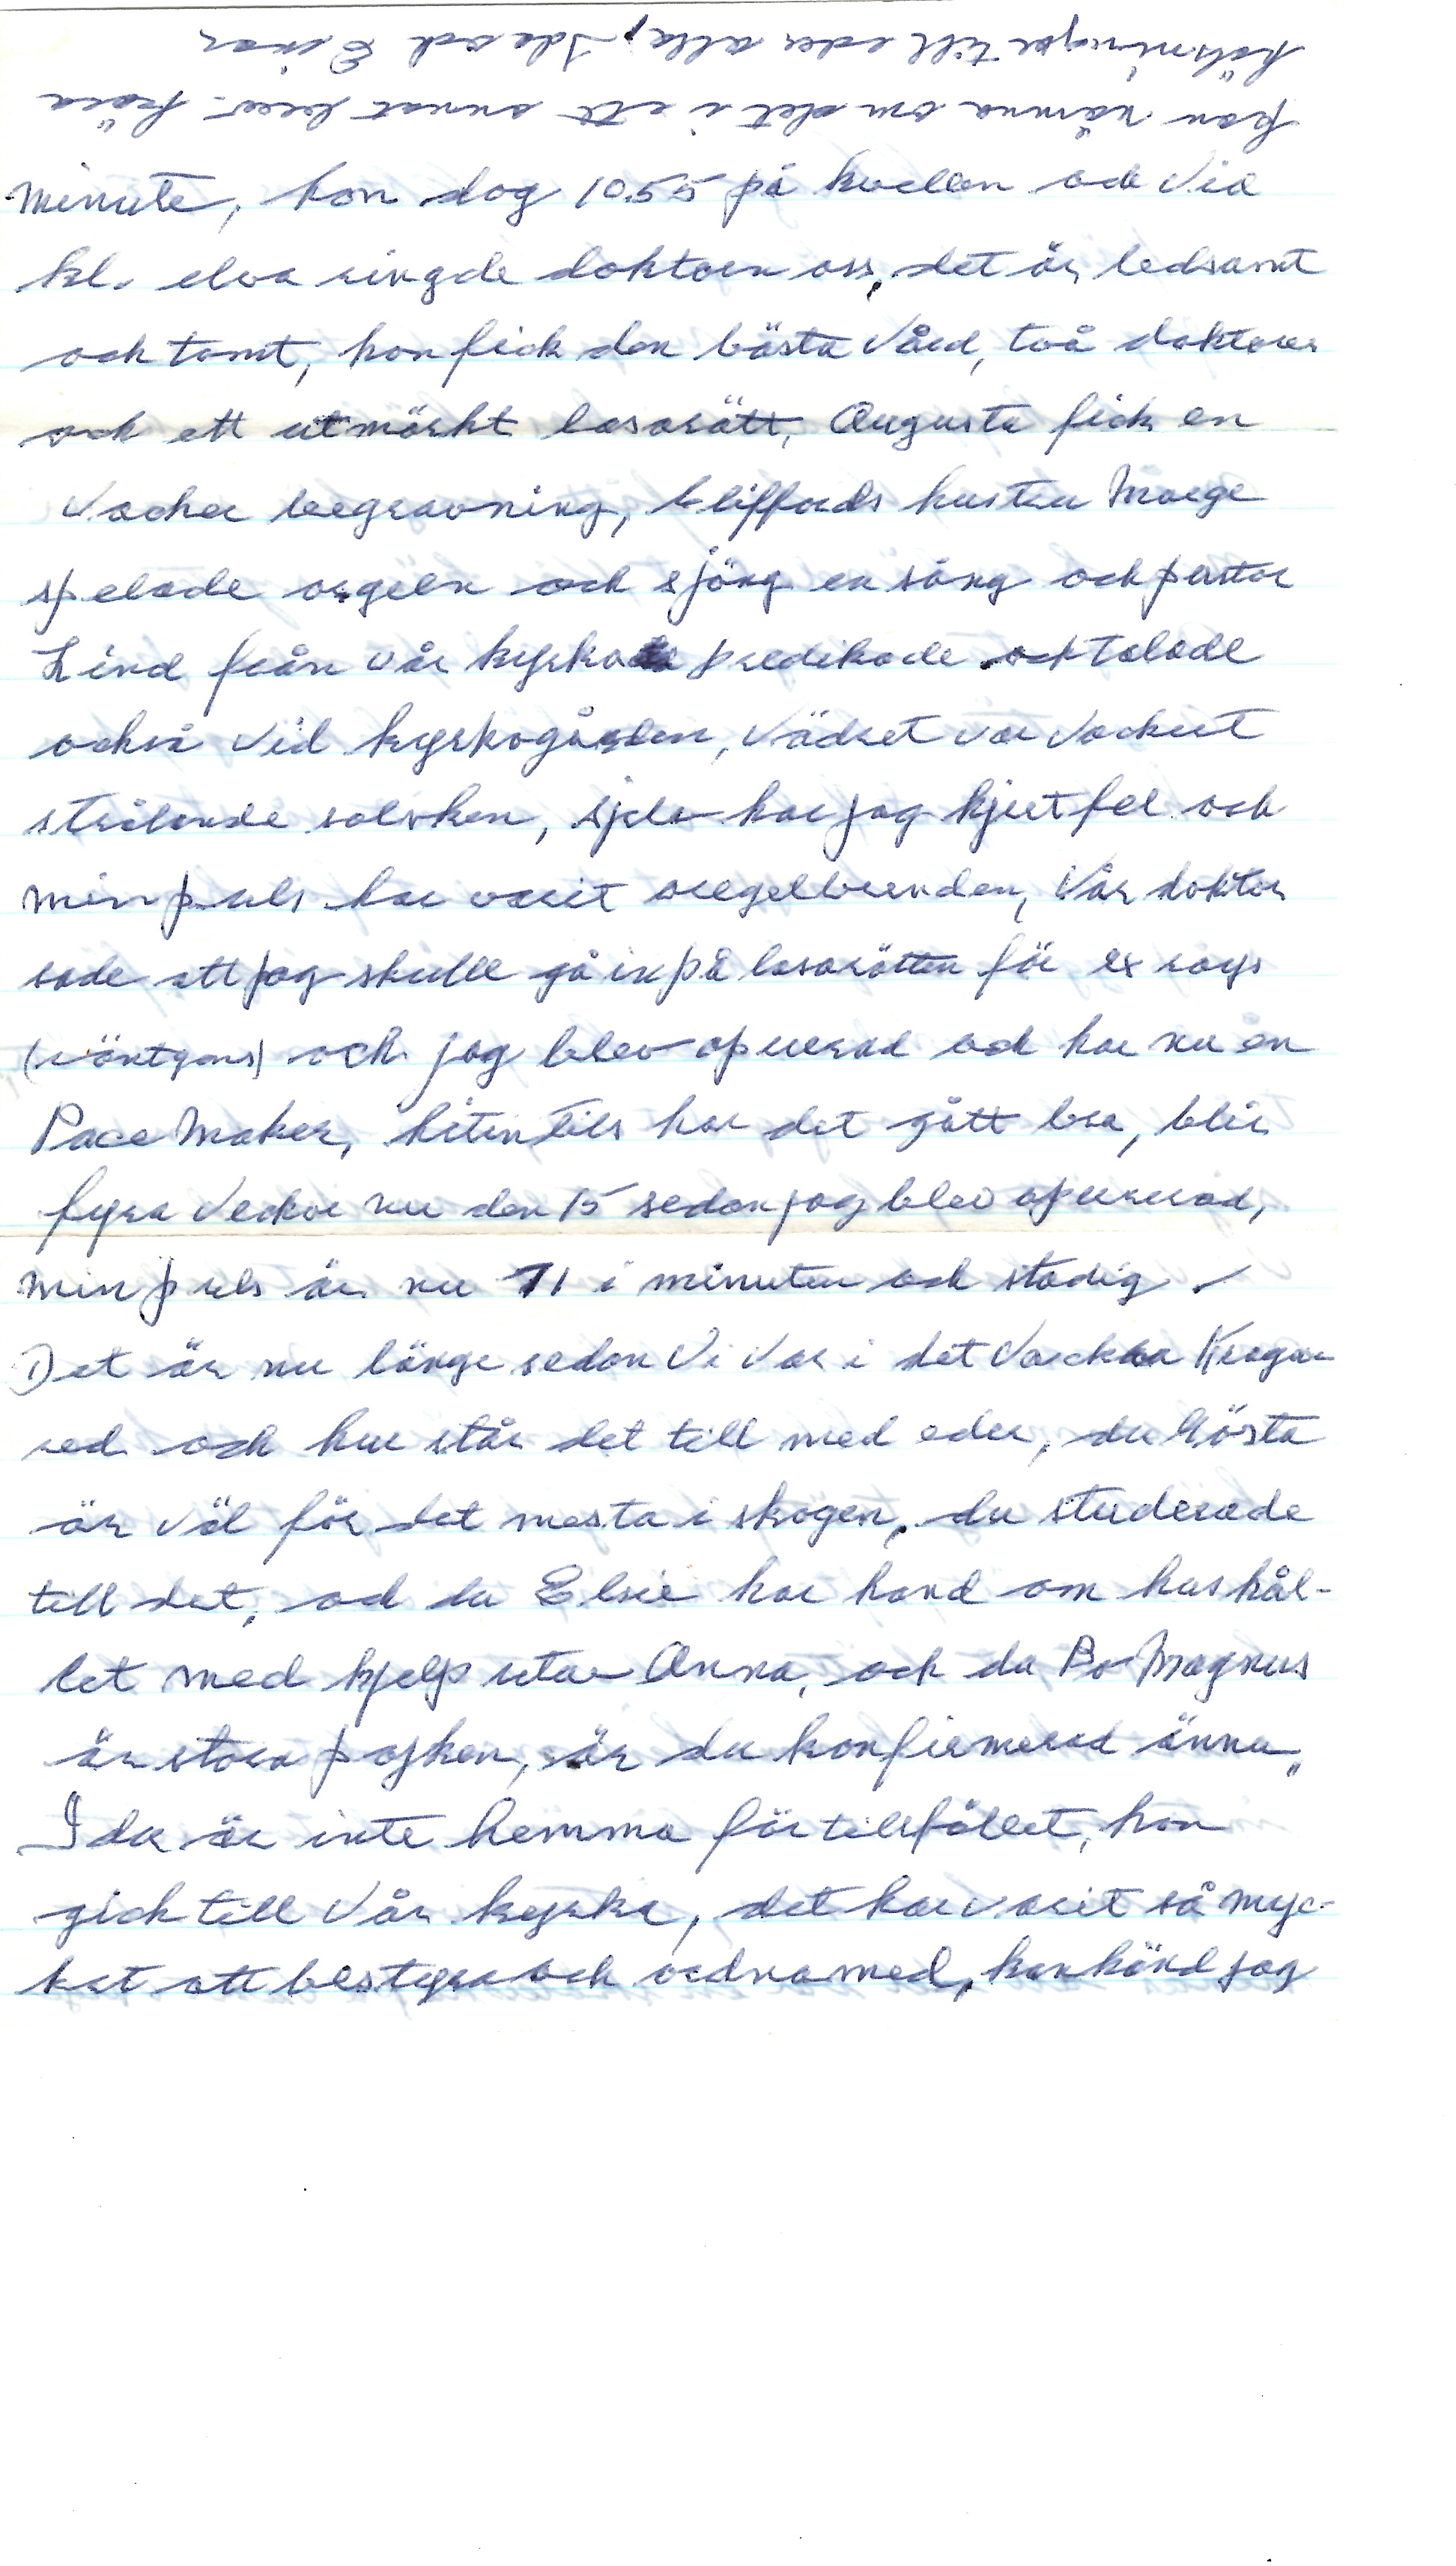 minute, hon dog 10.55 på kvällen och vid
kl. elva ringde doktorn oss, det är ledsamt
och tomt, hon fick den bästa vård, två doktorer
och ett utmärkt lasarätt, Augusta fick en
vacker begravning, Cliffords hustru Marge
spelade orgeln och sjöng en sång och pastor
Lind från vår kyrka predikade och talade
också vid kyrkogården, vädret var vackert
strålande solsken, sjelv har jag hjertfel och
min puls har varit oregelbunden, vår doktor
sade att jag skulle gå in på lasarätten för ex rays
(röntgens) och jag blev opererad och har nu en
Pace Maker, hitintils har det gått bra, blir
fyra veckor nu den 15 sedan jag blev opererad,
min puls är nu 71 i minuten och stadig.
Det är nu länge sedan vi var i det vackra Kraga-
red och hur står det till med eder, du Gösta
är väl för det mesta i skogen, du studerade
till det, och du Elsie har hand om hushål-
let med hjelp utav Anna, och du Bo Magnus
är stora pojken, är du konfirmerad ännu,
Ida är inte hemma för tillfället, hon
gick till vår kyrka, det har varit så myc-
ket att bestyra och ordna med, kanhänd jag
kan nämna om det i ett annat brev - kära
hälsningar till eder alla, Ida och Einar